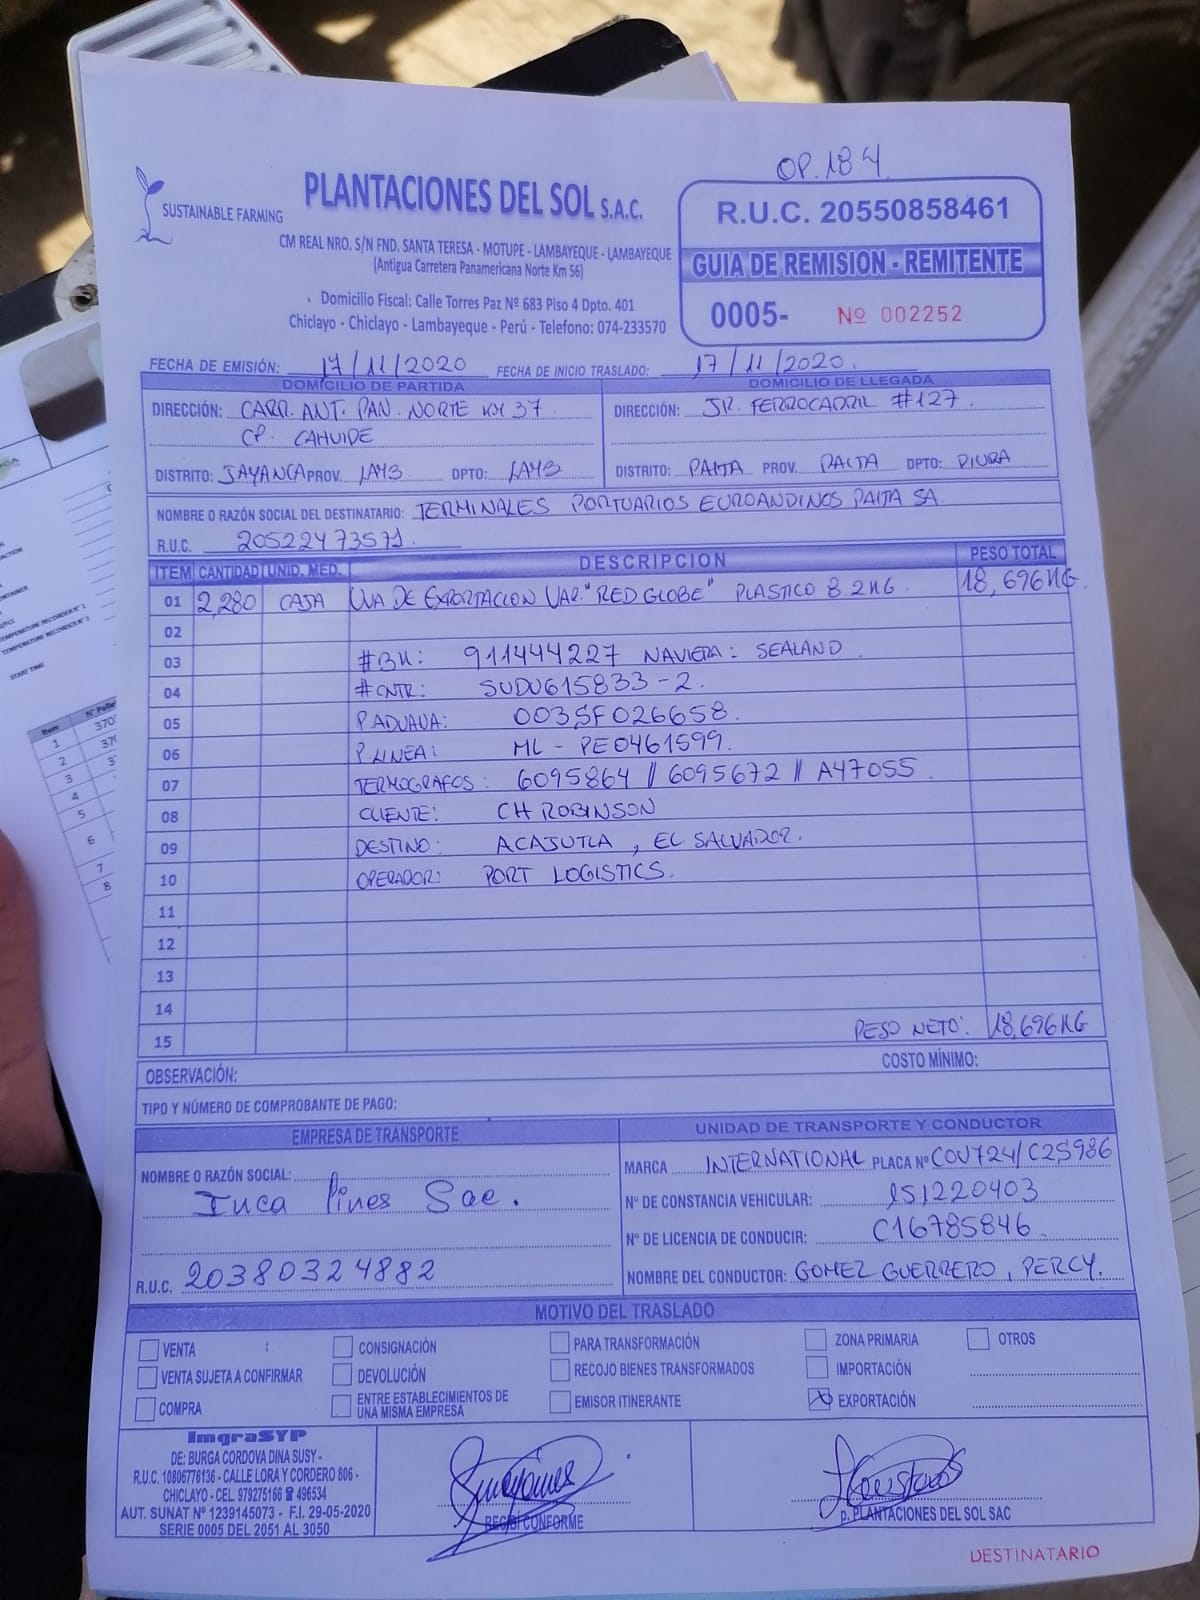 OP. 184
SUSTAINABLE FARMING
PLANTACIONES DEL SOL S.A.C.
CM REAL NRO. S/N FND. SANTA TERESA - MOTUPE - LAMBAYEQUE - LAMBAYEQUE
(Antigua Carretera Panamericana Norte Km 56)
Domicilio Fiscal: Calle Torres Paz Nº 683 Piso 4 Dpto. 401
Chiclayo - Chiclayo - Lambayeque - Perú - Telefono: 074-233570
R.U.C. 20550858461
GUIA DE REMISION - REMITENTE
0005- Nº 002252
FECHA DE EMISIÓN: 17/11/2020 FECHA DE INICIO TRASLADO: 17/11/2020.
DOMICILIO DE PARTIDA
DIRECCIÓN: CARR. ANT. PAN. NORTE KM 37.
CP. CAHUIDE
DISTRITO: JAYANCA PROV. LAMB DPTO: LAMB
DOMICILIO DE LLEGADA
DIRECCIÓN: JR. FERROCARRIL #127.
DISTRITO: PAITA PROV. PAITA DPTO: PIURA
NOMBRE O RAZÓN SOCIAL DEL DESTINATARIO: TERMINALES PORTUARIOS EUROANDINOS PAITA SA.
R.U.C. 20522473571.
ITEM CANTIDAD UNID. MED. DESCRIPCION PESO TOTAL
01 2,280 CAJA UVA DE EXPORTACION VAR. "RED GLOBE" PLASTICO 8.2KG. 18,696KG.
02
03 #BK: 911444227 NAVIERA: SEALAND.
04 #CNTR: SUDU615833-2.
05 P.ADUANA: 003SF026658.
06 P.LINEA: ML - PE0461599.
07 TERMOGRAFOS: 6095864 // 6095672 // A47055.
08 CLIENTE: CH ROBINSON
09 DESTINO: ACAJUTLA, EL SALVADOR.
10 OPERADOR: PORT LOGISTICS.
11
12
13
14
15 PESO NETO: 18,696KG
OBSERVACIÓN: COSTO MÍNIMO:
TIPO Y NÚMERO DE COMPROBANTE DE PAGO:
EMPRESA DE TRANSPORTE
NOMBRE O RAZÓN SOCIAL:
Inca Lines Sac.
R.U.C. 20380324882
UNIDAD DE TRANSPORTE Y CONDUCTOR
MARCA INTERNATIONAL PLACA Nº COU724/C2S986
Nº DE CONSTANCIA VEHICULAR: 151220403
Nº DE LICENCIA DE CONDUCIR: C16785846.
NOMBRE DEL CONDUCTOR: GOMEZ GUERRERO, PERCY.
MOTIVO DEL TRASLADO
VENTA CONSIGNACIÓN PARA TRANSFORMACIÓN ZONA PRIMARIA OTROS
VENTA SUJETA A CONFIRMAR DEVOLUCIÓN RECOJO BIENES TRANSFORMADOS IMPORTACIÓN
COMPRA ENTRE ESTABLECIMIENTOS DE UNA MISMA EMPRESA EMISOR ITINERANTE EXPORTACIÓN
ImgraSYP
DE: BURGA CORDOVA DINA SUSY -
R.U.C. 10806776136 - CALLE LORA Y CORDERO 806 -
CHICLAYO - CEL. 979275166 ☎ 496534
AUT. SUNAT Nº 1239145073 - F.I. 29-05-2020
SERIE 0005 DEL 2051 AL 3050
RECIBÍ CONFORME
p. PLANTACIONES DEL SOL SAC
DESTINATARIO
TEMPERATURE RECORDER N° 1
START TIME
Item N° Pallet
1
2
3
4
5
6
7
8